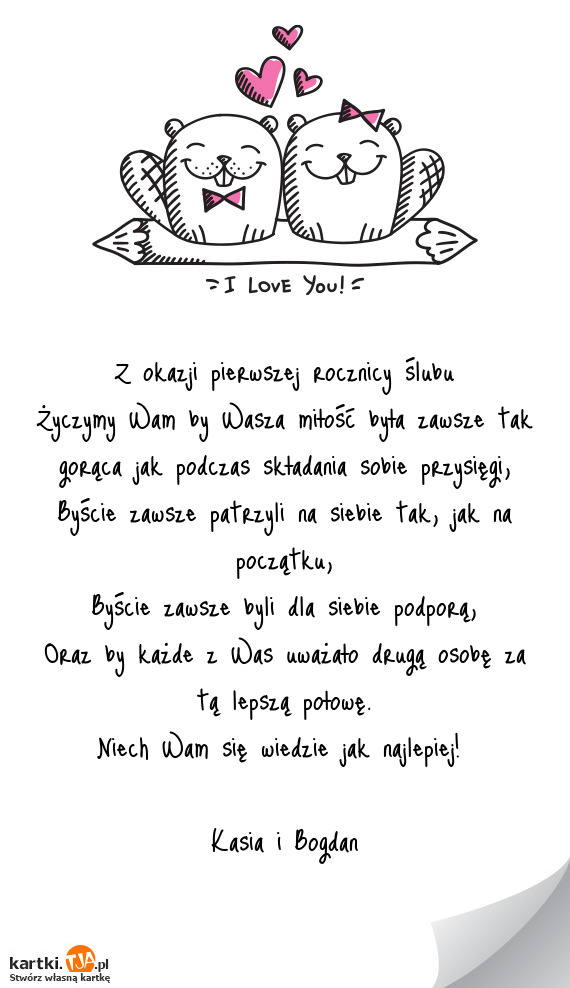 I LOVE YOU!
Z okazji pierwszej rocznicy ślubu
Życzymy Wam by Wasza miłość była zawsze tak
gorąca jak podczas składania sobie przysięgi,
Byście zawsze patrzyli na siebie tak, jak na
początku,
Byście zawsze byli dla siebie podporą,
Oraz by każde z Was uważało drugą osobę za
tą lepszą połowę.
Niech Wam się wiedzie jak najlepiej!
Kasia i Bogdan
kartki.TJA.pl
Stwórz własną kartkę